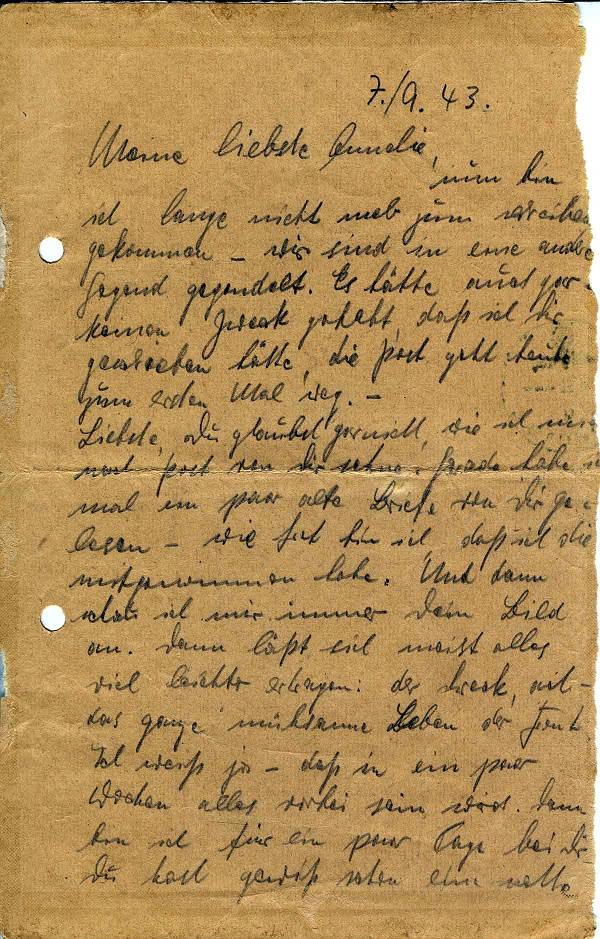 7./9. 43.
Meine liebste Annelie,
nun bin
ich lange nicht mehr zum schreiben
gekommen – wir sind in eine andere
Gegend gegondelt. Es hätte auch gar
keinen Zweck gehabt, daß ich Dir
geschrieben hätte, die Post geht heute
zum ersten Mal weg. –
Liebste, Du glaubst garnicht, wie ich mich
nach Post von Dir sehne. Gerade habe ich
mal ein paar alte Briefe von Dir ge-
lesen – wie froh bin ich, daß ich die
mitgenommen habe. Und dann
schau ich mir immer Dein Bild
an. Dann läßt sich meist alles
viel leichter ertragen: der Dreck,
das ganze mühsame Leben der Front
Ich weiß ja – daß in ein paar
Wochen alles vorbei sein wird. Dann
bin ich für ein paar Tage bei Dir
Du hast gewiß schon eine nette